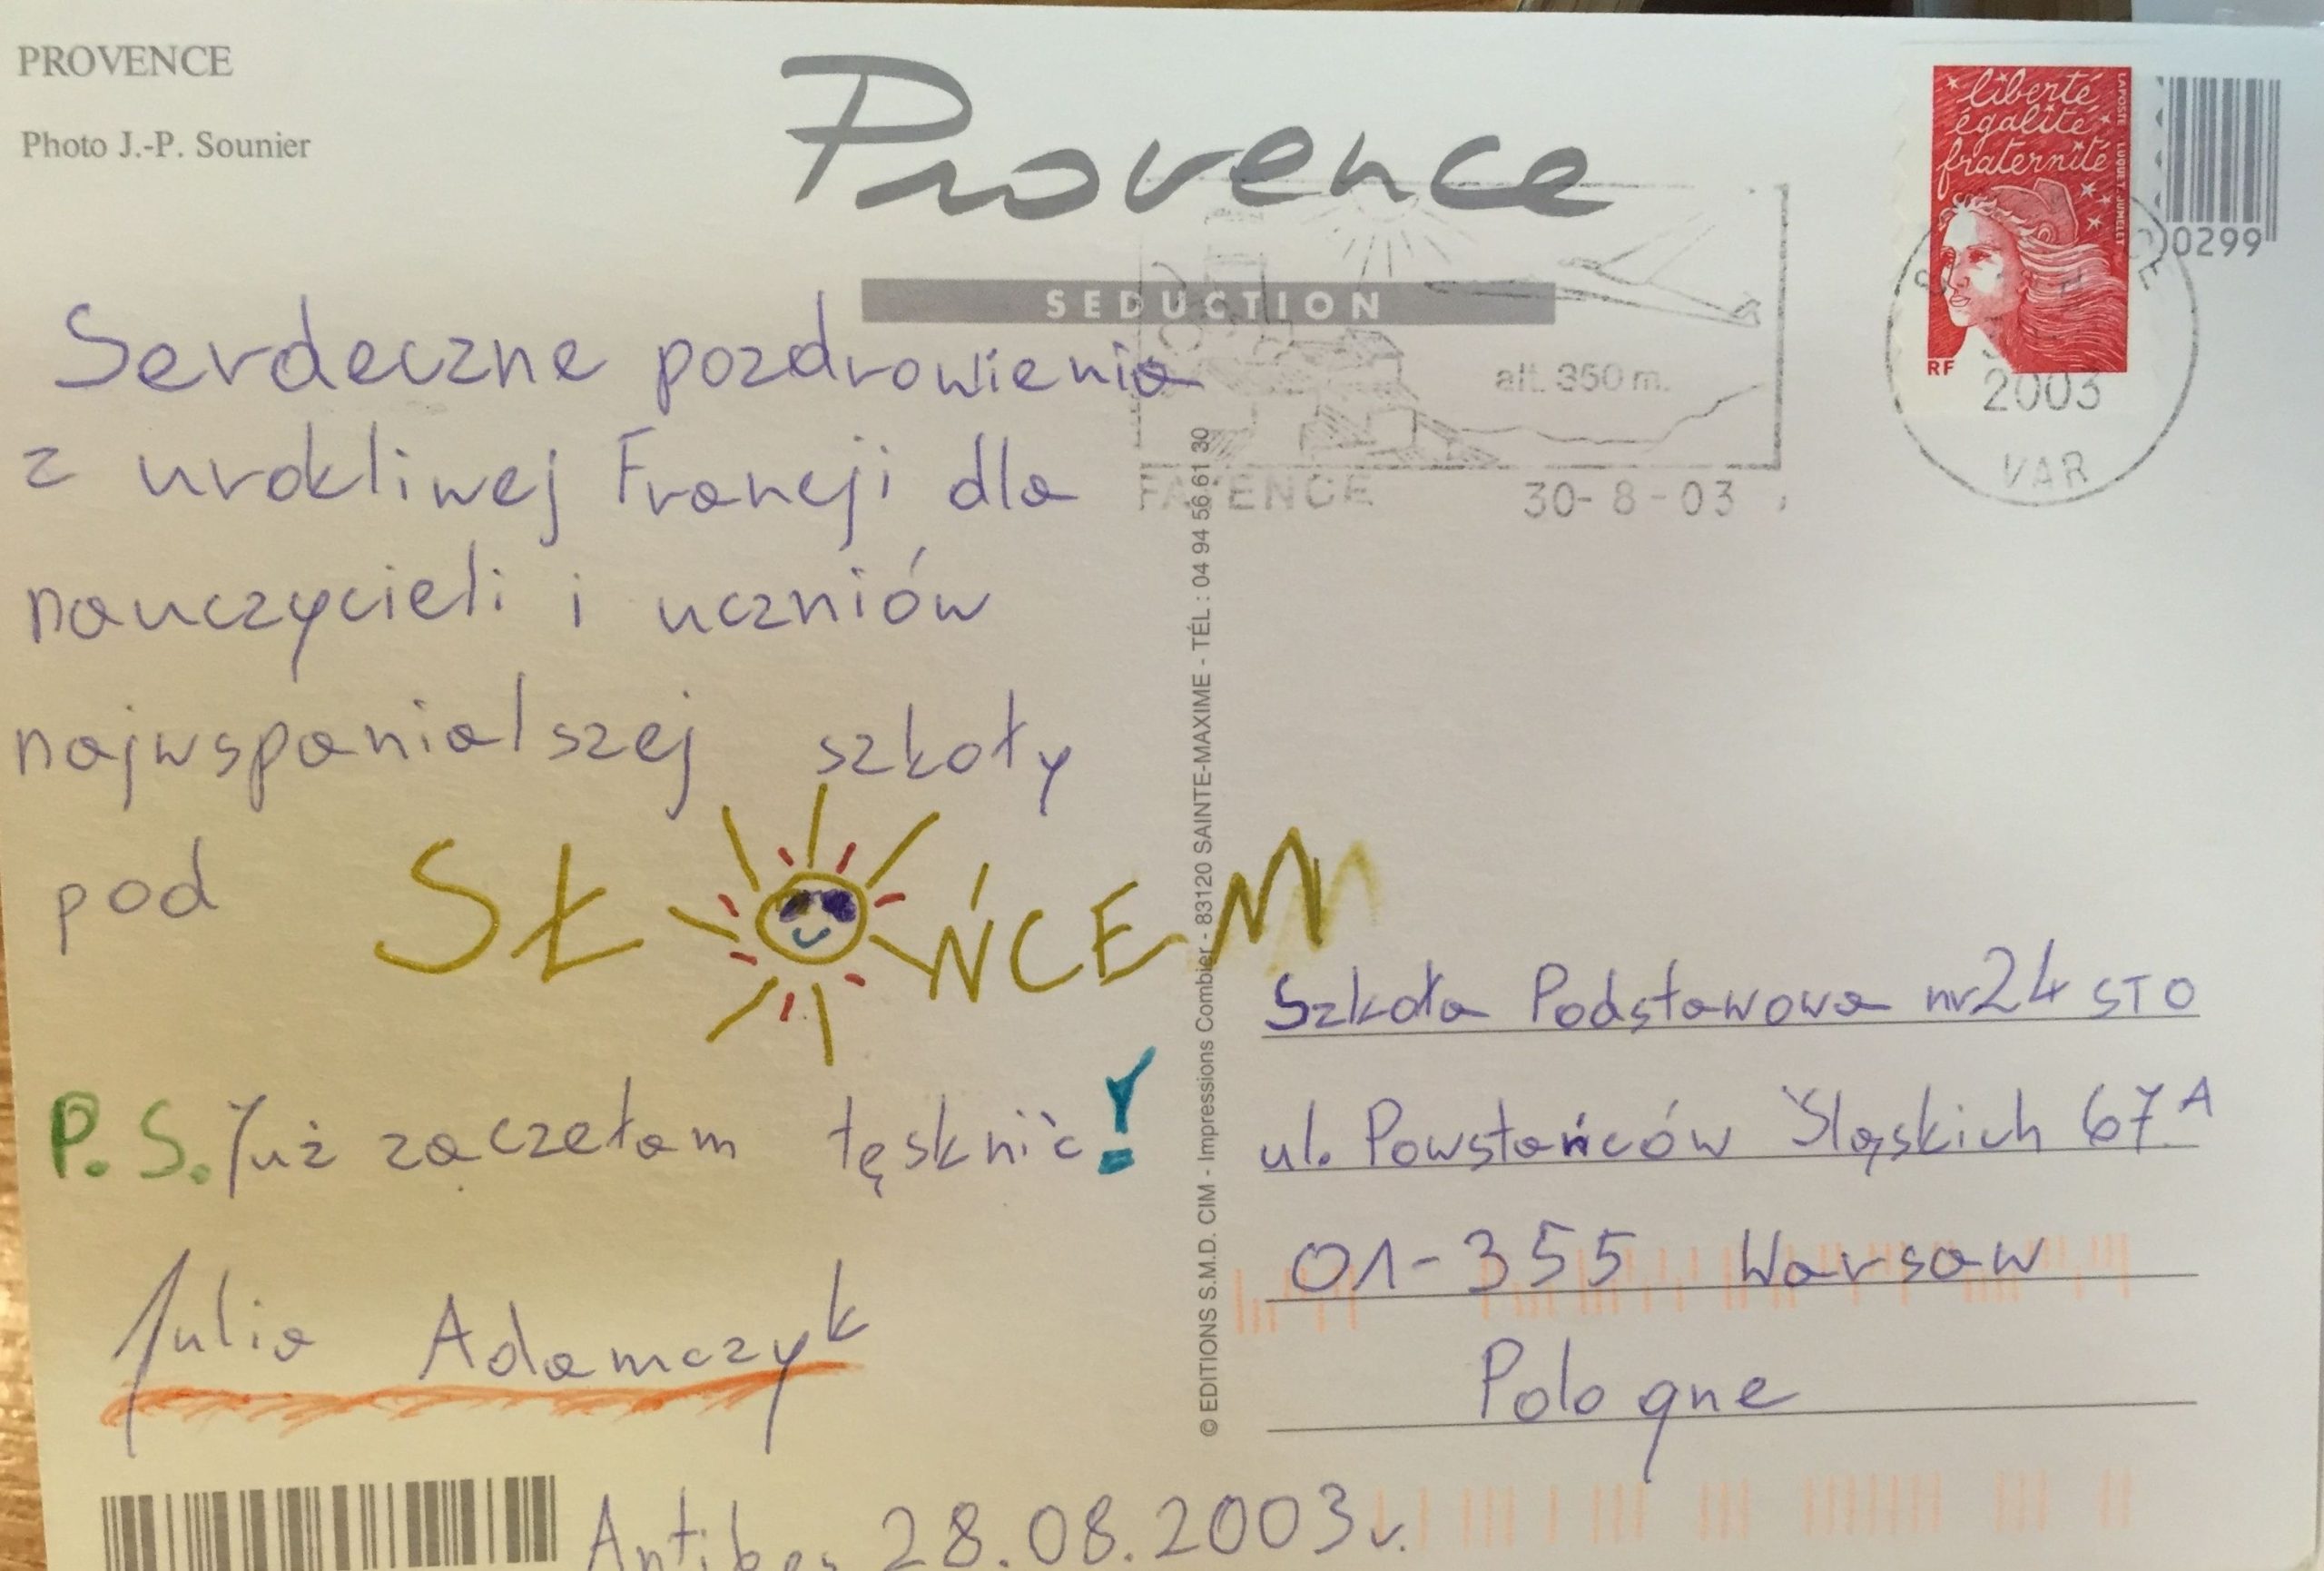 PROVENCE
Photo J.-P. Sounier
Provence
SEDUCTION
liberté
égalité
fraternité
RF
LA POSTE LUQUET JUMELET
0299
2003
VAR
alt. 350 m.
FAYENCE 30-8-03
Serdeczne pozdrowienia
z urokliwej Francji dla
nauczycieli i uczniów
najwspanialszej szkoły
pod SŁOŃCEM
P.S. Już zaczęłam tęsknić!
Julia Adamczyk
Antibes 28.08.2003r.
© EDITIONS S.M.D. CIM - Impressions Combier - 83120 SAINTE-MAXIME - TÉL : 04 94 56 61 30
Szkoła Podstawowa nr 24 STO
ul. Powstańców Śląskich 67A
01-355 Warsaw
Pologne